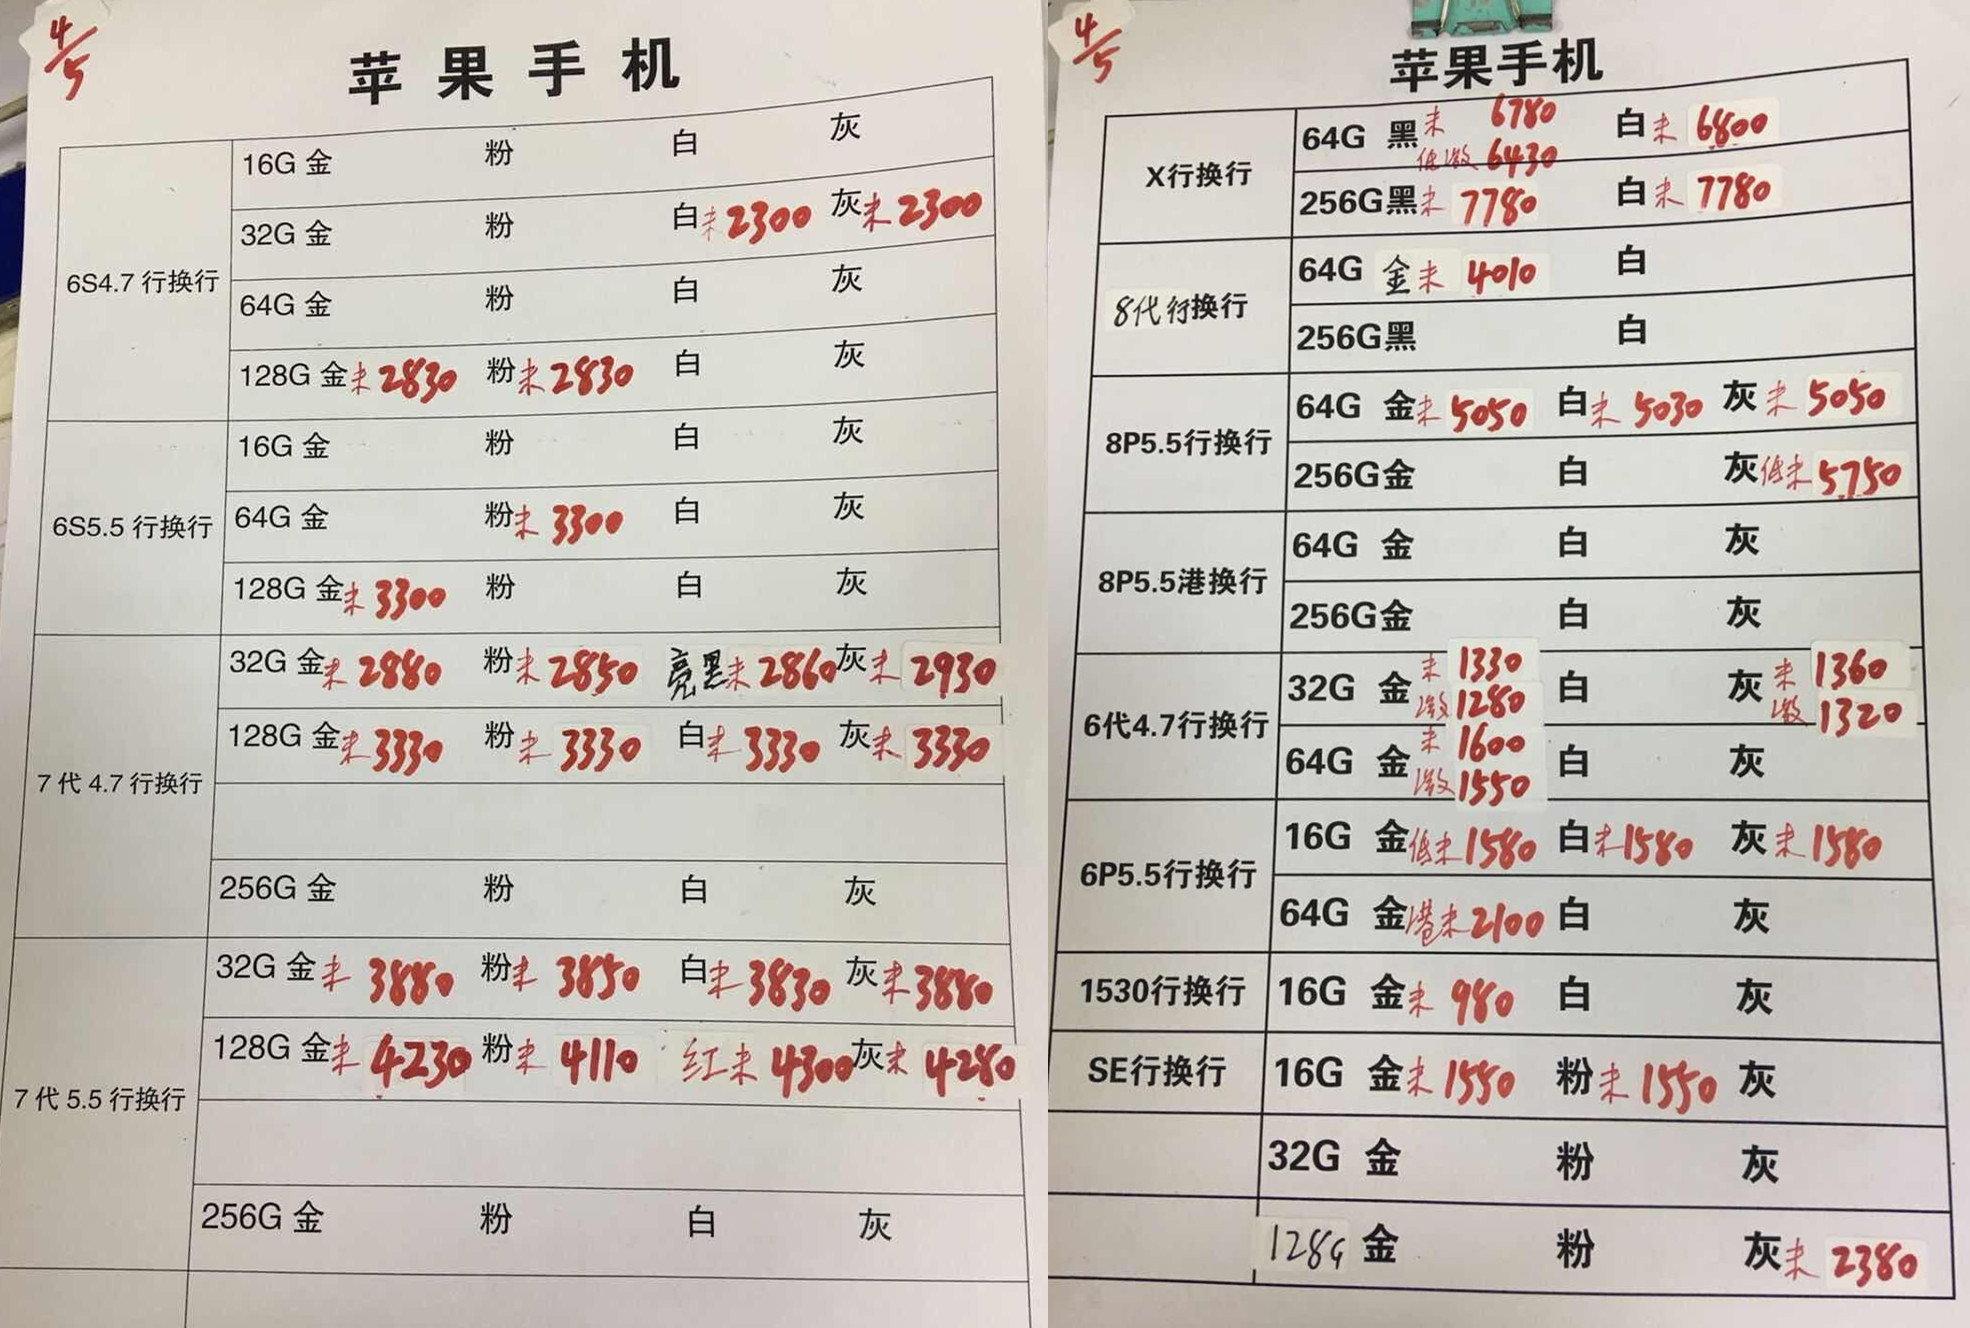 4/5
苹果手机
6S4.7 行换行
16G 金 粉 白 灰
32G 金 粉 白未2300 灰未2300
64G 金 粉 白 灰
128G 金未2830 粉未2830 白 灰
6S5.5 行换行
16G 金 粉 白 灰
64G 金 粉未3300 白 灰
128G 金未3300 粉 白 灰
7代 4.7 行换行
32G 金未2880 粉未2850 亮黑未2860 灰未2930
128G 金未3330 粉未3330 白未3330 灰未3330
256G 金 粉 白 灰
7代 5.5 行换行
32G 金未3880 粉未3850 白未3830 灰未3880
128G 金未4230 粉未4110 红未4300 灰未4280
256G 金 粉 白 灰
4/5
苹果手机
X行换行
64G 黑未6780 白未6800
低激6430
256G黑未7780 白未7780
8代行换行
64G 金未4010 白
256G黑 白
8P5.5行换行
64G 金未5050 白未5030 灰未5050
256G金 白 灰低未5750
8P5.5港换行
64G 金 白 灰
256G金 白 灰
6代4.7行换行
32G 金未1330 白 灰未1360
激1280 激1320
64G 金未1600 白 灰
激1550
6P5.5行换行
16G 金低未1580 白未1580 灰未1580
64G 金港未2100 白 灰
1530行换行
16G 金未980 白 灰
SE行换行
16G 金未1550 粉未1550 灰
32G 金 粉 灰
128G 金 粉 灰未2380